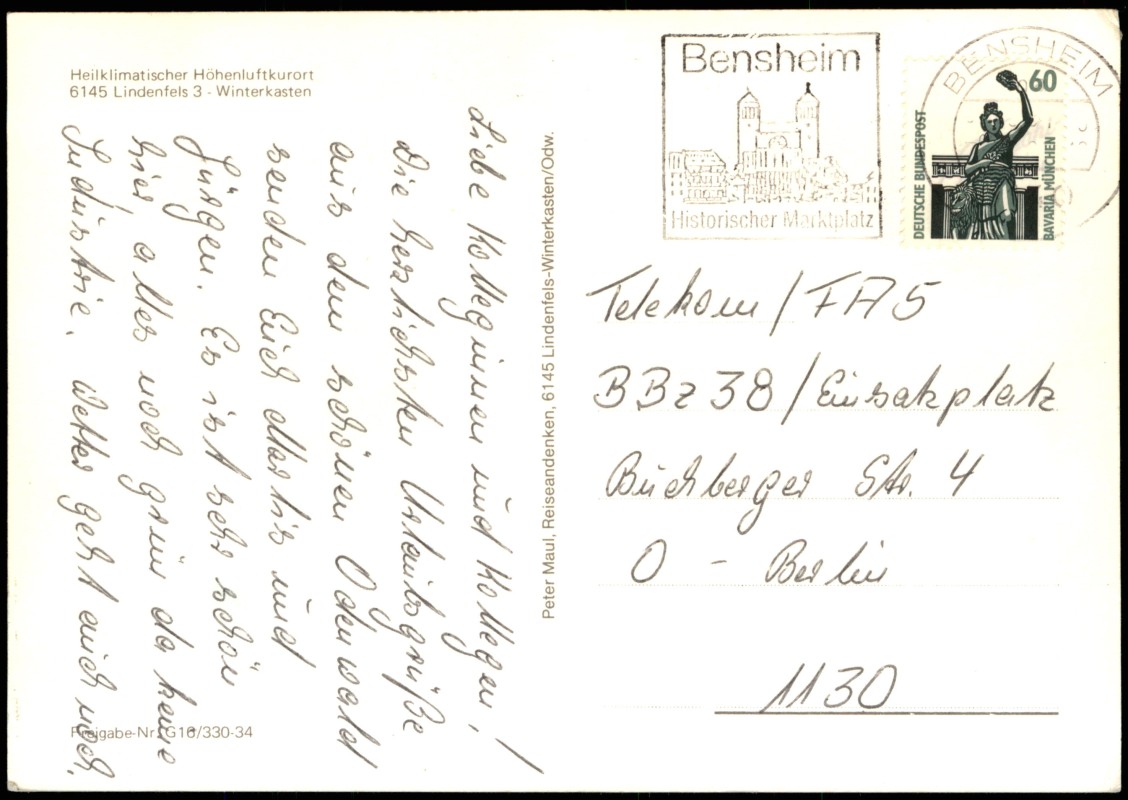 Heilklimatischer Höhenluftkurort
6145 Lindenfels 3 - Winterkasten
Liebe Kolleginnen und Kollegen!
Die herzlichsten Urlaubsgrüße
aus dem schönen Odenwald
senden Euch Marlis und
Jürgen. Es ist sehr schön
hier, alles noch grün da keine
Industrie. Wetter geht auch noch.
Freigabe-Nr. G16/330-34
Peter Maul, Reiseandenken, 6145 Lindenfels-Winterkasten/Odw.
Bensheim
Historischer Marktplatz
BENSHEIM
60
DEUTSCHE BUNDESPOST
BAVARIA MÜNCHEN
Telekom / FA 5
BBz 38 / Einsatzplatz
Buchberger Str. 4
O - Berlin
1130